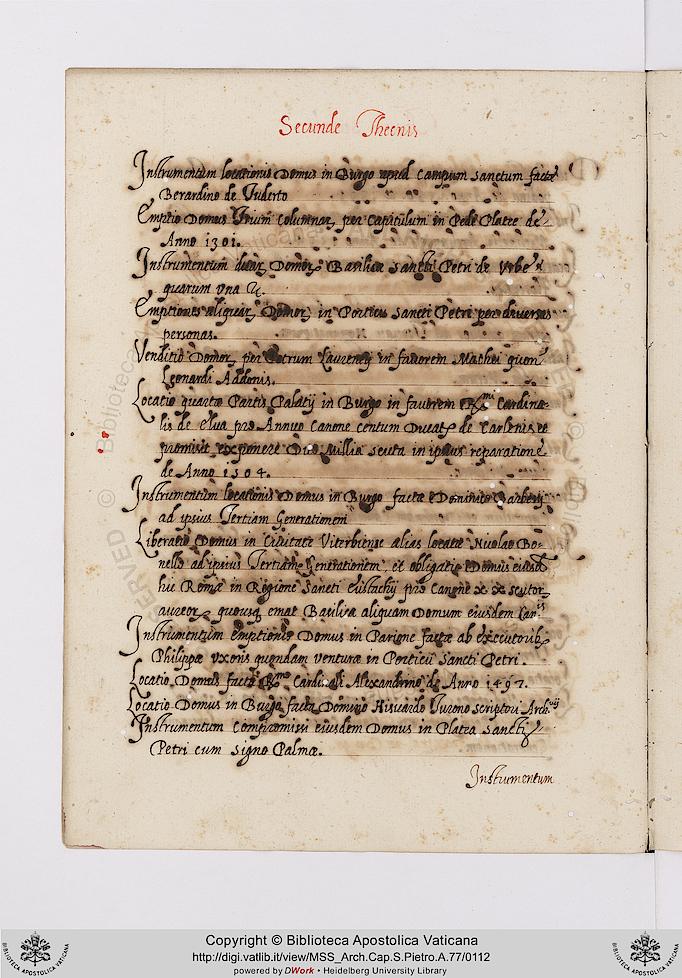 Secunde Thecnis
Instrumentum locationis Domus in Burgo apud Campum Sanctum factæ
Berardino de Tuderto
Emptio Domus Trium Columnar, per Capitulum in Pede Platee de
Anno 1301.
Instrumentum duar, Domor, Basilicæ Sancti Petri de Urbe
quarum una
Emptiones aliquar, Domor, in Porticu Sancti Petri per diversas
personas.
Venditio Domor, per Petrum Laurentij in favorem Mathei quon
Leonardi Addonis.
Locatio quartæ Partis Palatij in Burgo in favorem Cardina-
lis de elva pro Annuo Canone centum Ducat, de Carlenis et
promisit exponere Duo Millia scuta in ipsius reparatione
de Anno 1504.
Instrumentum locationis Domus in Burgo factæ Dominico Barberij
ad ipsius Tertiam Generationem
Liberatio Domus in Civitate Viterbiense alias locatæ Nicolao Bo-
nello ad ipsius Tertiam Generationem, et obligatio Domus eiusd
hic Romæ in Regione Sancti eustachij pro Canone x x scutor,
aureor, quousq emat Basilica aliquam Domum eiusdem Can
Instrumentum emptionis Domus in Parione factæ ab executorib,
Philippæ uxoris quondam venturæ in Porticu Sancti Petri.
Locatio Domus facta Cardinali Alexandrino de Anno 1497.
Locatio Domus in Burgo facta Domino scriptori
Instrumentum Compromissi eiusdem Domus in Platea Sancti
Petri cum signo Palmæ.
Instrumentum
Copyright © Biblioteca Apostolica Vaticana
http://digi.vatlib.it/view/MSS_Arch.Cap.S.Pietro.A.77/0112
powered by DWork • Heidelberg University Library